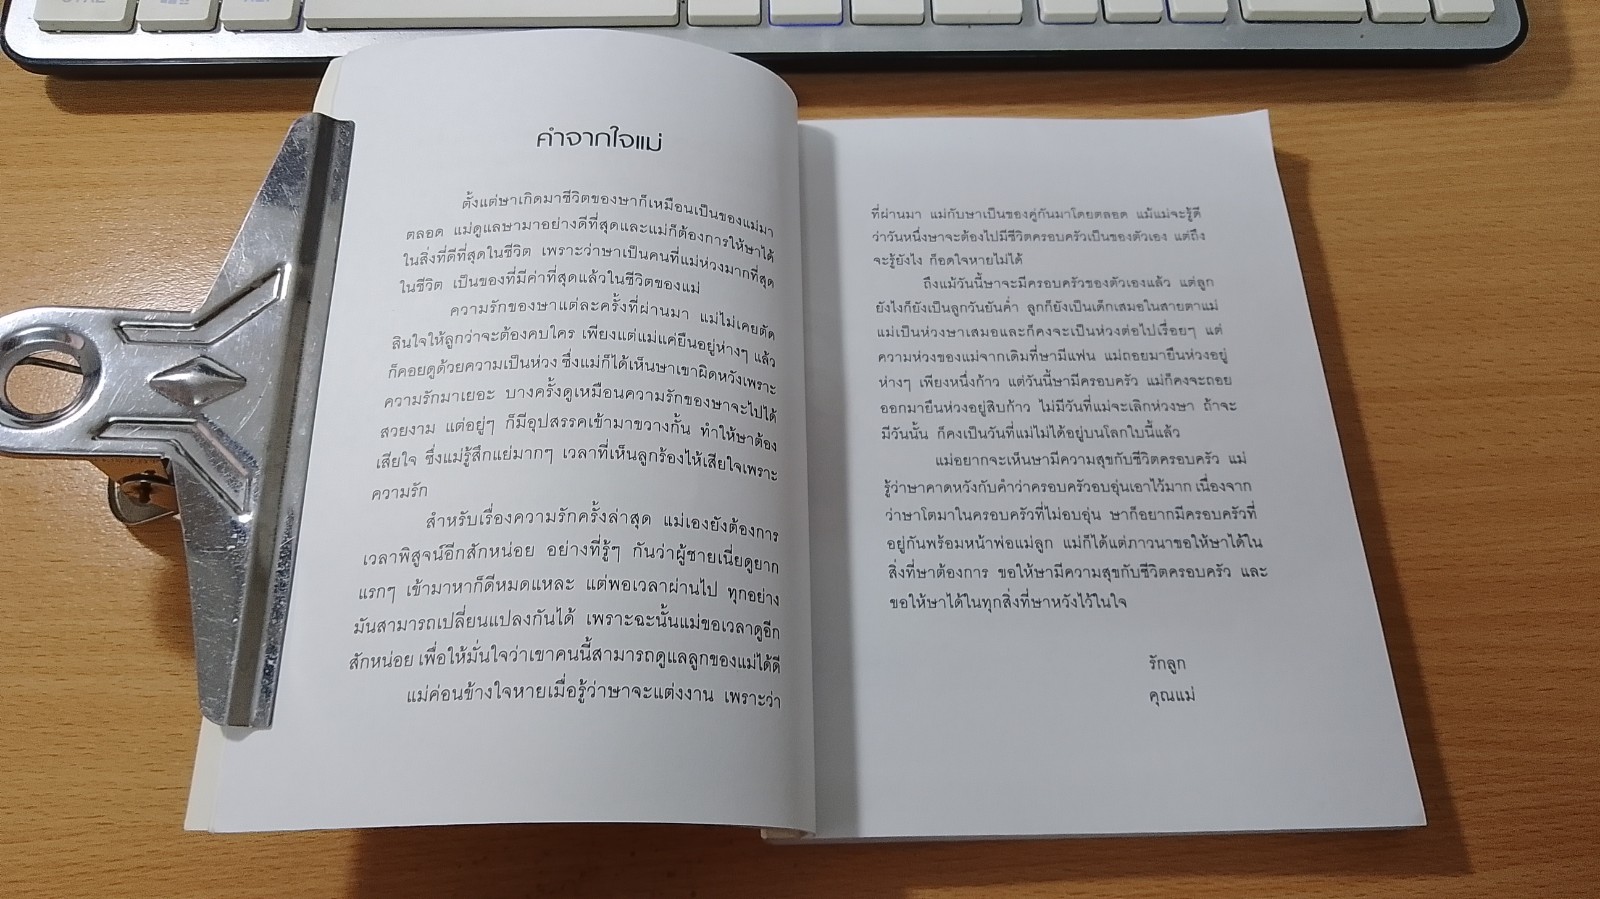 คำจากใจแม่
ตั้งแต่ษาเกิดมาชีวิตของษาก็เหมือนเป็นของแม่มา
ตลอด แม่ดูแลษามาอย่างดีที่สุดและแม่ก็ต้องการให้ษาได้
ในสิ่งที่ดีที่สุดในชีวิต เพราะว่าษาเป็นคนที่แม่ห่วงมากที่สุด
ในชีวิต เป็นของที่มีค่าที่สุดแล้วในชีวิตของแม่
ความรักของษาแต่ละครั้งที่ผ่านมา แม่ไม่เคยตัด
สินใจให้ลูกว่าจะต้องคบใคร เพียงแต่แม่แค่ยืนอยู่ห่างๆ แล้ว
ก็คอยดูด้วยความเป็นห่วง ซึ่งแม่ก็ได้เห็นษาเขาผิดหวังเพราะ
ความรักมาเยอะ บางครั้งดูเหมือนความรักของษาจะไปได้
สวยงาม แต่อยู่ๆ ก็มีอุปสรรคเข้ามาขวางกั้น ทำให้ษาต้อง
เสียใจ ซึ่งแม่รู้สึกแย่มากๆ เวลาที่เห็นลูกร้องไห้เสียใจเพราะ
ความรัก
สำหรับเรื่องความรักครั้งล่าสุด แม่เองยังต้องการ
เวลาพิสูจน์อีกสักหน่อย อย่างที่รู้ๆ กันว่าผู้ชายเนี่ยดูยาก
แรกๆ เข้ามาหาก็ดีหมดแหละ แต่พอเวลาผ่านไป ทุกอย่าง
มันสามารถเปลี่ยนแปลงกันได้ เพราะฉะนั้นแม่ขอเวลาดูอีก
สักหน่อย เพื่อให้มั่นใจว่าเขาคนนี้สามารถดูแลลูกของแม่ได้ดี
แม่ค่อนข้างใจหายเมื่อรู้ว่าษาจะแต่งงาน เพราะว่า
ที่ผ่านมา แม่กับษาเป็นของคู่กันมาโดยตลอด แม้แม่จะรู้ดี
ว่าวันหนึ่งษาจะต้องไปมีชีวิตครอบครัวเป็นของตัวเอง แต่ถึง
จะรู้ยังไง ก็อดใจหายไม่ได้
ถึงแม้วันนี้ษาจะมีครอบครัวของตัวเองแล้ว แต่ลูก
ยังไงก็ยังเป็นลูกวันยันค่ำ ลูกก็ยังเป็นเด็กเสมอในสายตาแม่
แม่เป็นห่วงษาเสมอและก็คงจะเป็นห่วงต่อไปเรื่อยๆ แต่
ความห่วงของแม่จากเดิมที่ษามีแฟน แม่ถอยมายืนห่วงอยู่
ห่างๆ เพียงหนึ่งก้าว แต่วันนี้ษามีครอบครัว แม่ก็คงจะถอย
ออกมายืนห่วงอยู่สิบก้าว ไม่มีวันที่แม่จะเลิกห่วงษา ถ้าจะ
มีวันนั้น ก็คงเป็นวันที่แม่ไม่ได้อยู่บนโลกใบนี้แล้ว
แม่อยากจะเห็นษามีความสุขกับชีวิตครอบครัว แม่
รู้ว่าษาคาดหวังกับคำว่าครอบครัวอบอุ่นเอาไว้มาก เนื่องจาก
ว่าษาโตมาในครอบครัวที่ไม่อบอุ่น ษาก็อยากมีครอบครัวที่
อยู่กันพร้อมหน้าพ่อแม่ลูก แม่ก็ได้แต่ภาวนาขอให้ษาได้ใน
สิ่งที่ษาต้องการ ขอให้ษามีความสุขกับชีวิตครอบครัว และ
ขอให้ษาได้ในทุกสิ่งที่ษาหวังไว้ในใจ
รักลูก
คุณแม่